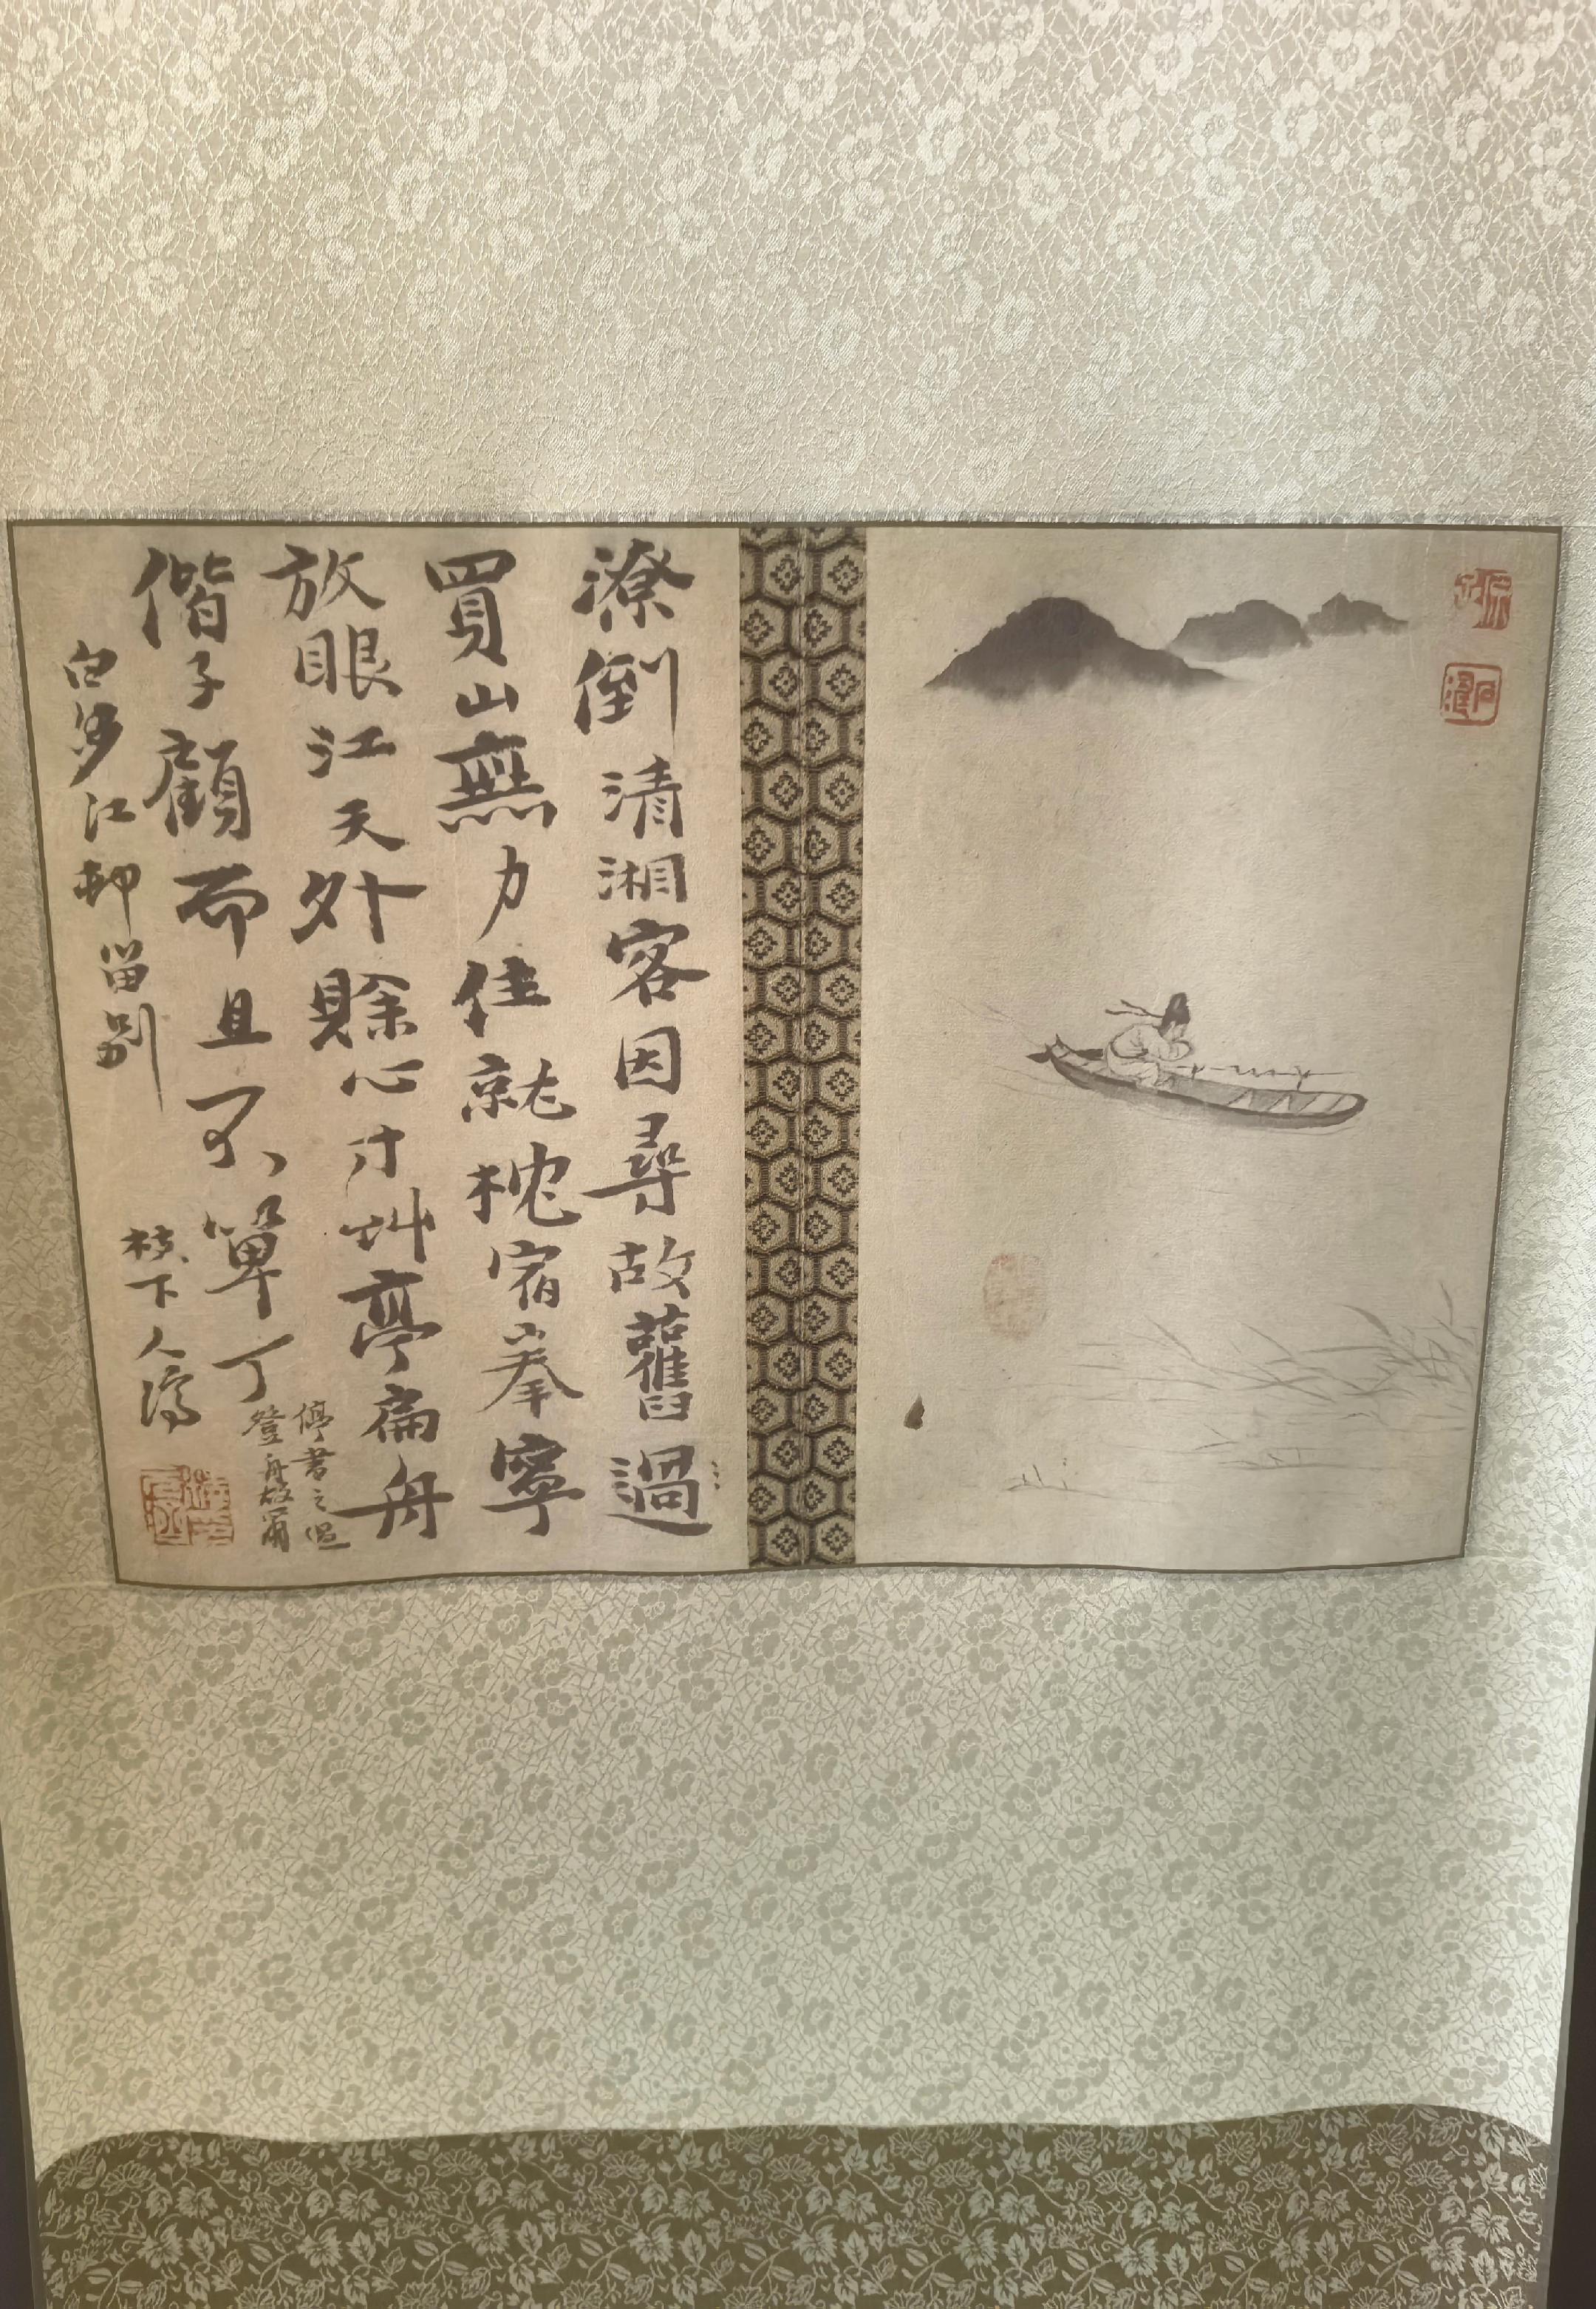 潦倒清湘客因尋故舊過
買山無力住就枕宿拳寧
放眼江天外賒心寸艸亭扁舟
偕子顧而且不箄丁
停書之過
登舟故爾
白沙江邨留別
枝下人濟